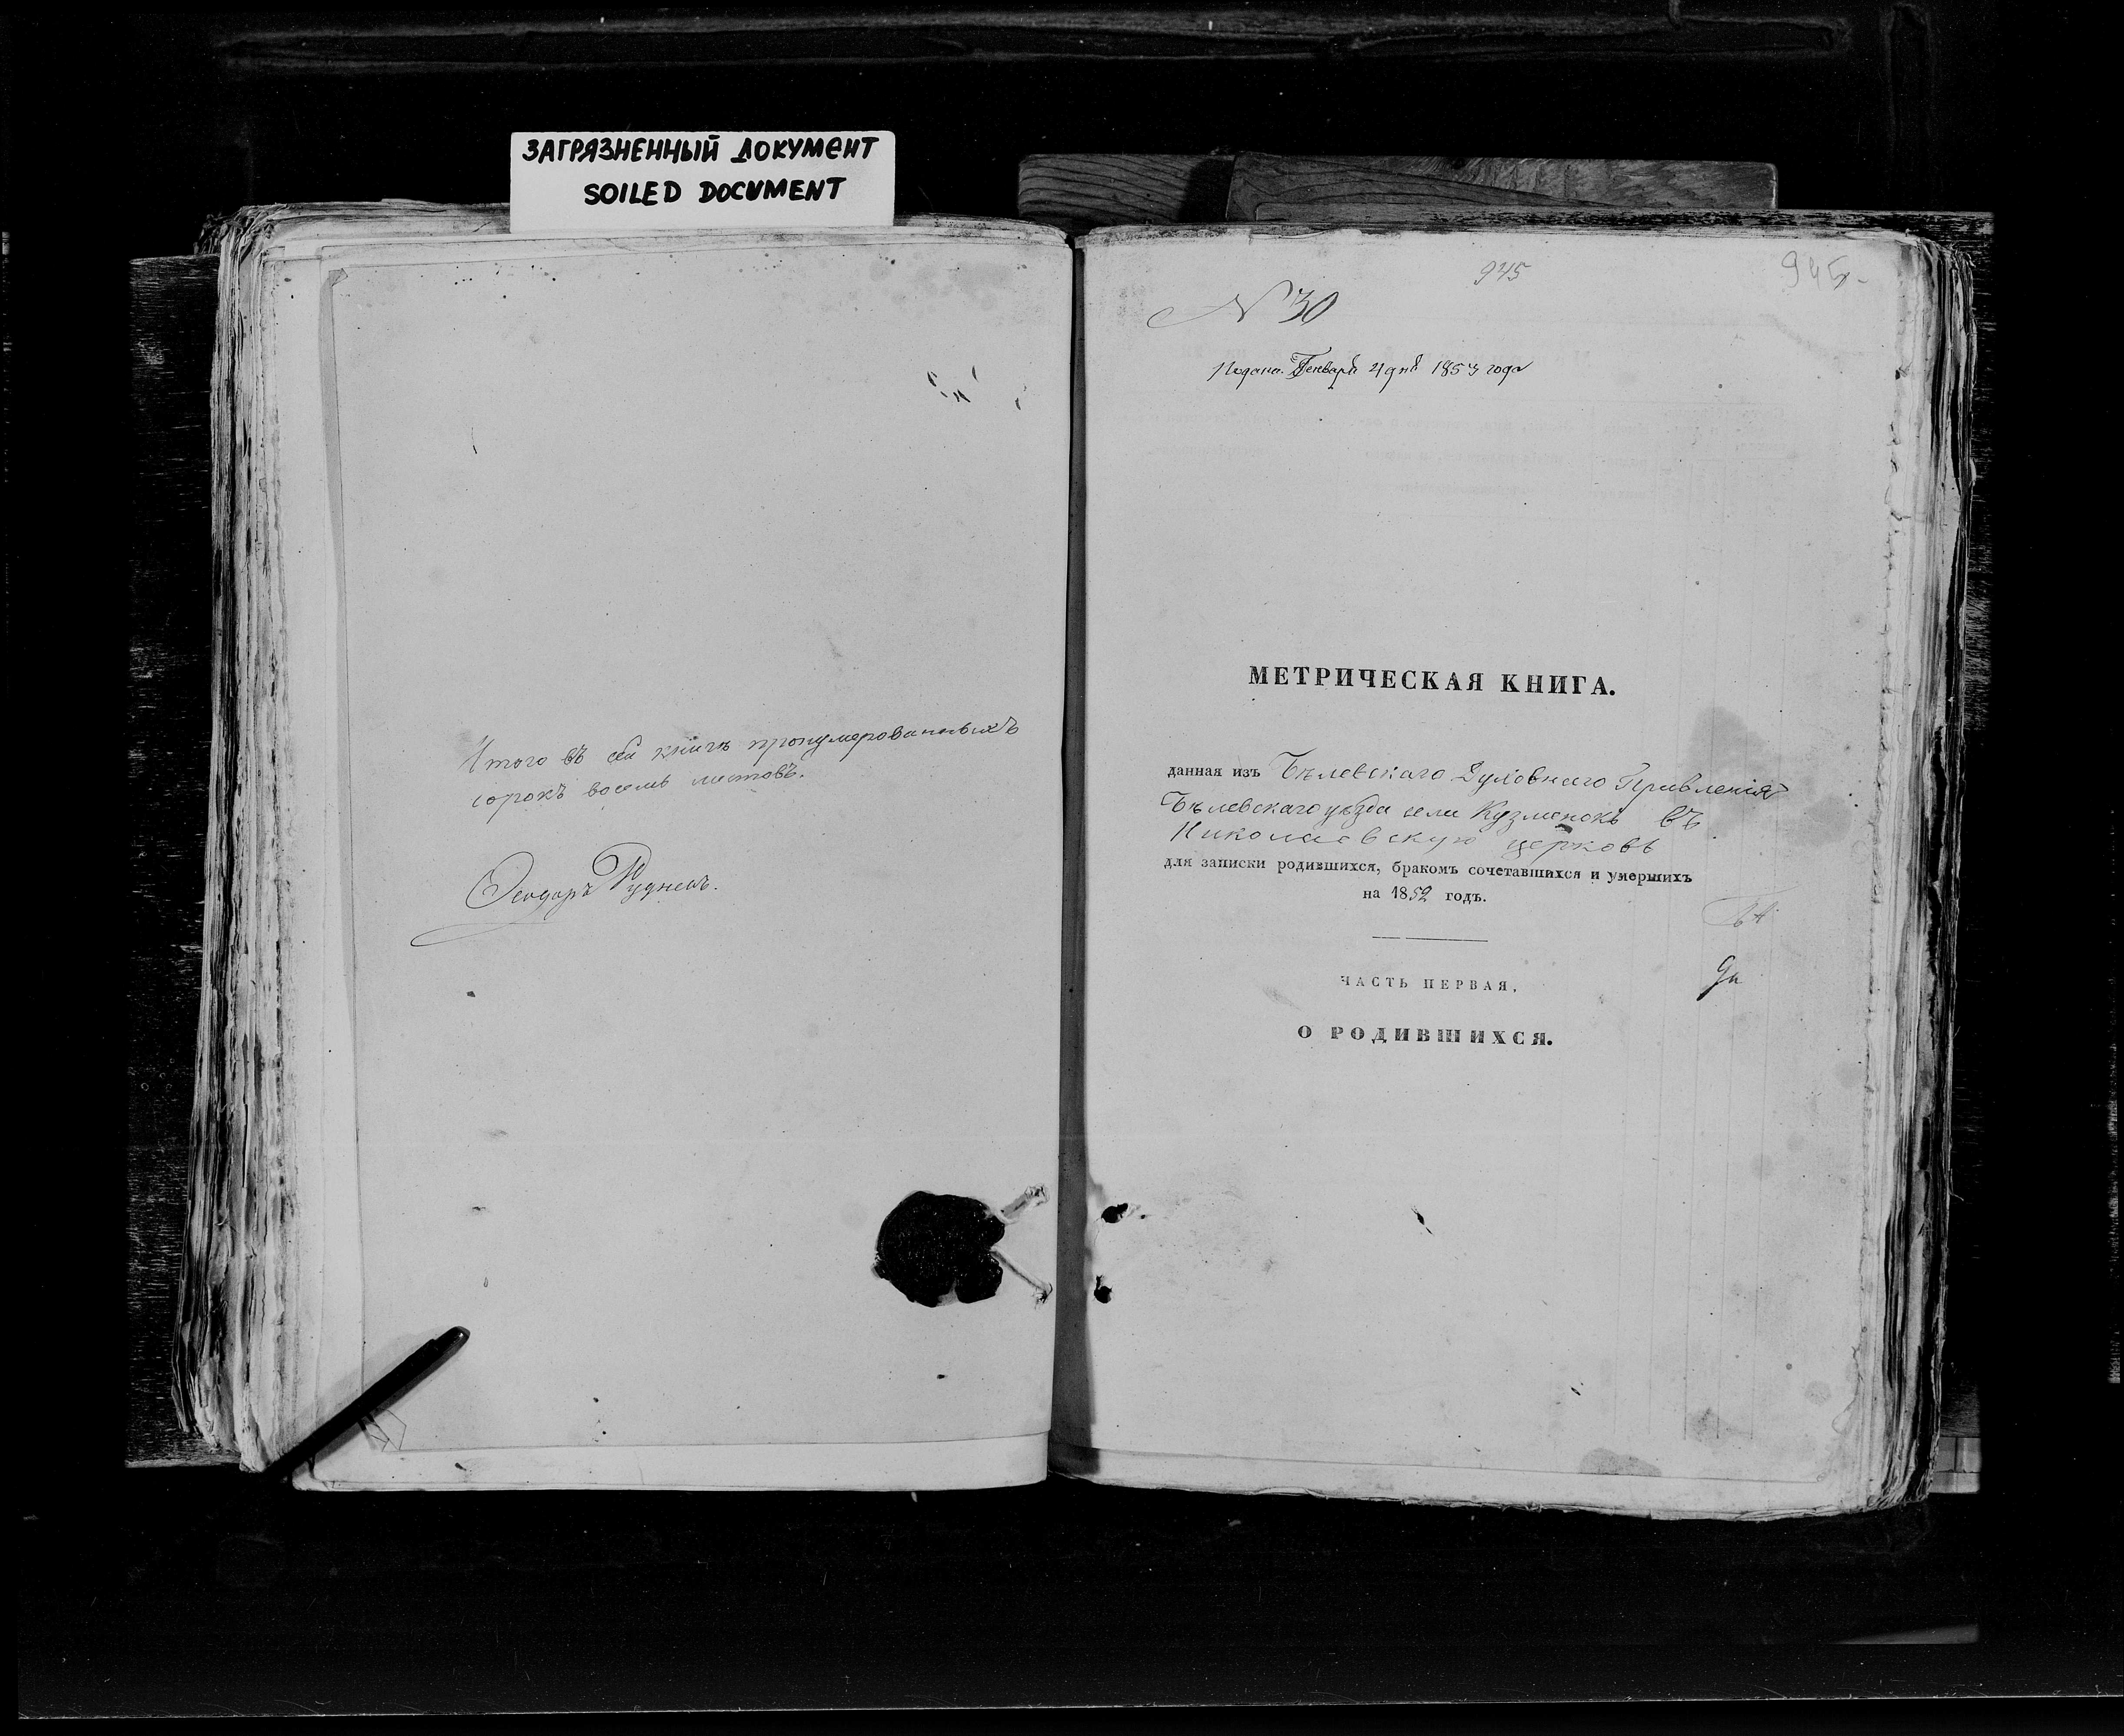 ЗАГРЯЗНЕННЫЙ ДОКУМЕНТ
SOILED DOCUMENT
Итого въ сей книгѣ пронумерованныхъ
сорокъ восемь листовъ.
Ѳеодоръ Рудневъ.
945
945
N 30
Подана Генваря 4 дня 1853 года
МЕТРИЧЕСКАЯ КНИГА.
данная изъ Бѣлевскаго Духовнаго Правленія
Бѣлевскаго уѣзда села Кузменокъ въ
Николаевскую церковь
для записки родившихся, бракомъ сочетавшихся и умершихъ
на 1852 годъ.
ЧАСТЬ ПЕРВАЯ.
О РОДИВШИХСЯ.